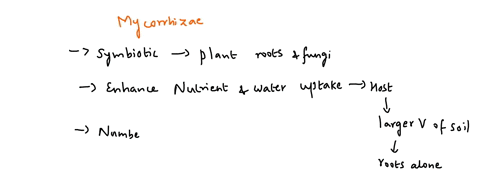 Mycorrhizae
-> Symbiotic -> plant roots & fungi
-> Enhance Nutrient & water uptake -> Host
↓
larger V of soil
↓
roots alone
-> Numbe